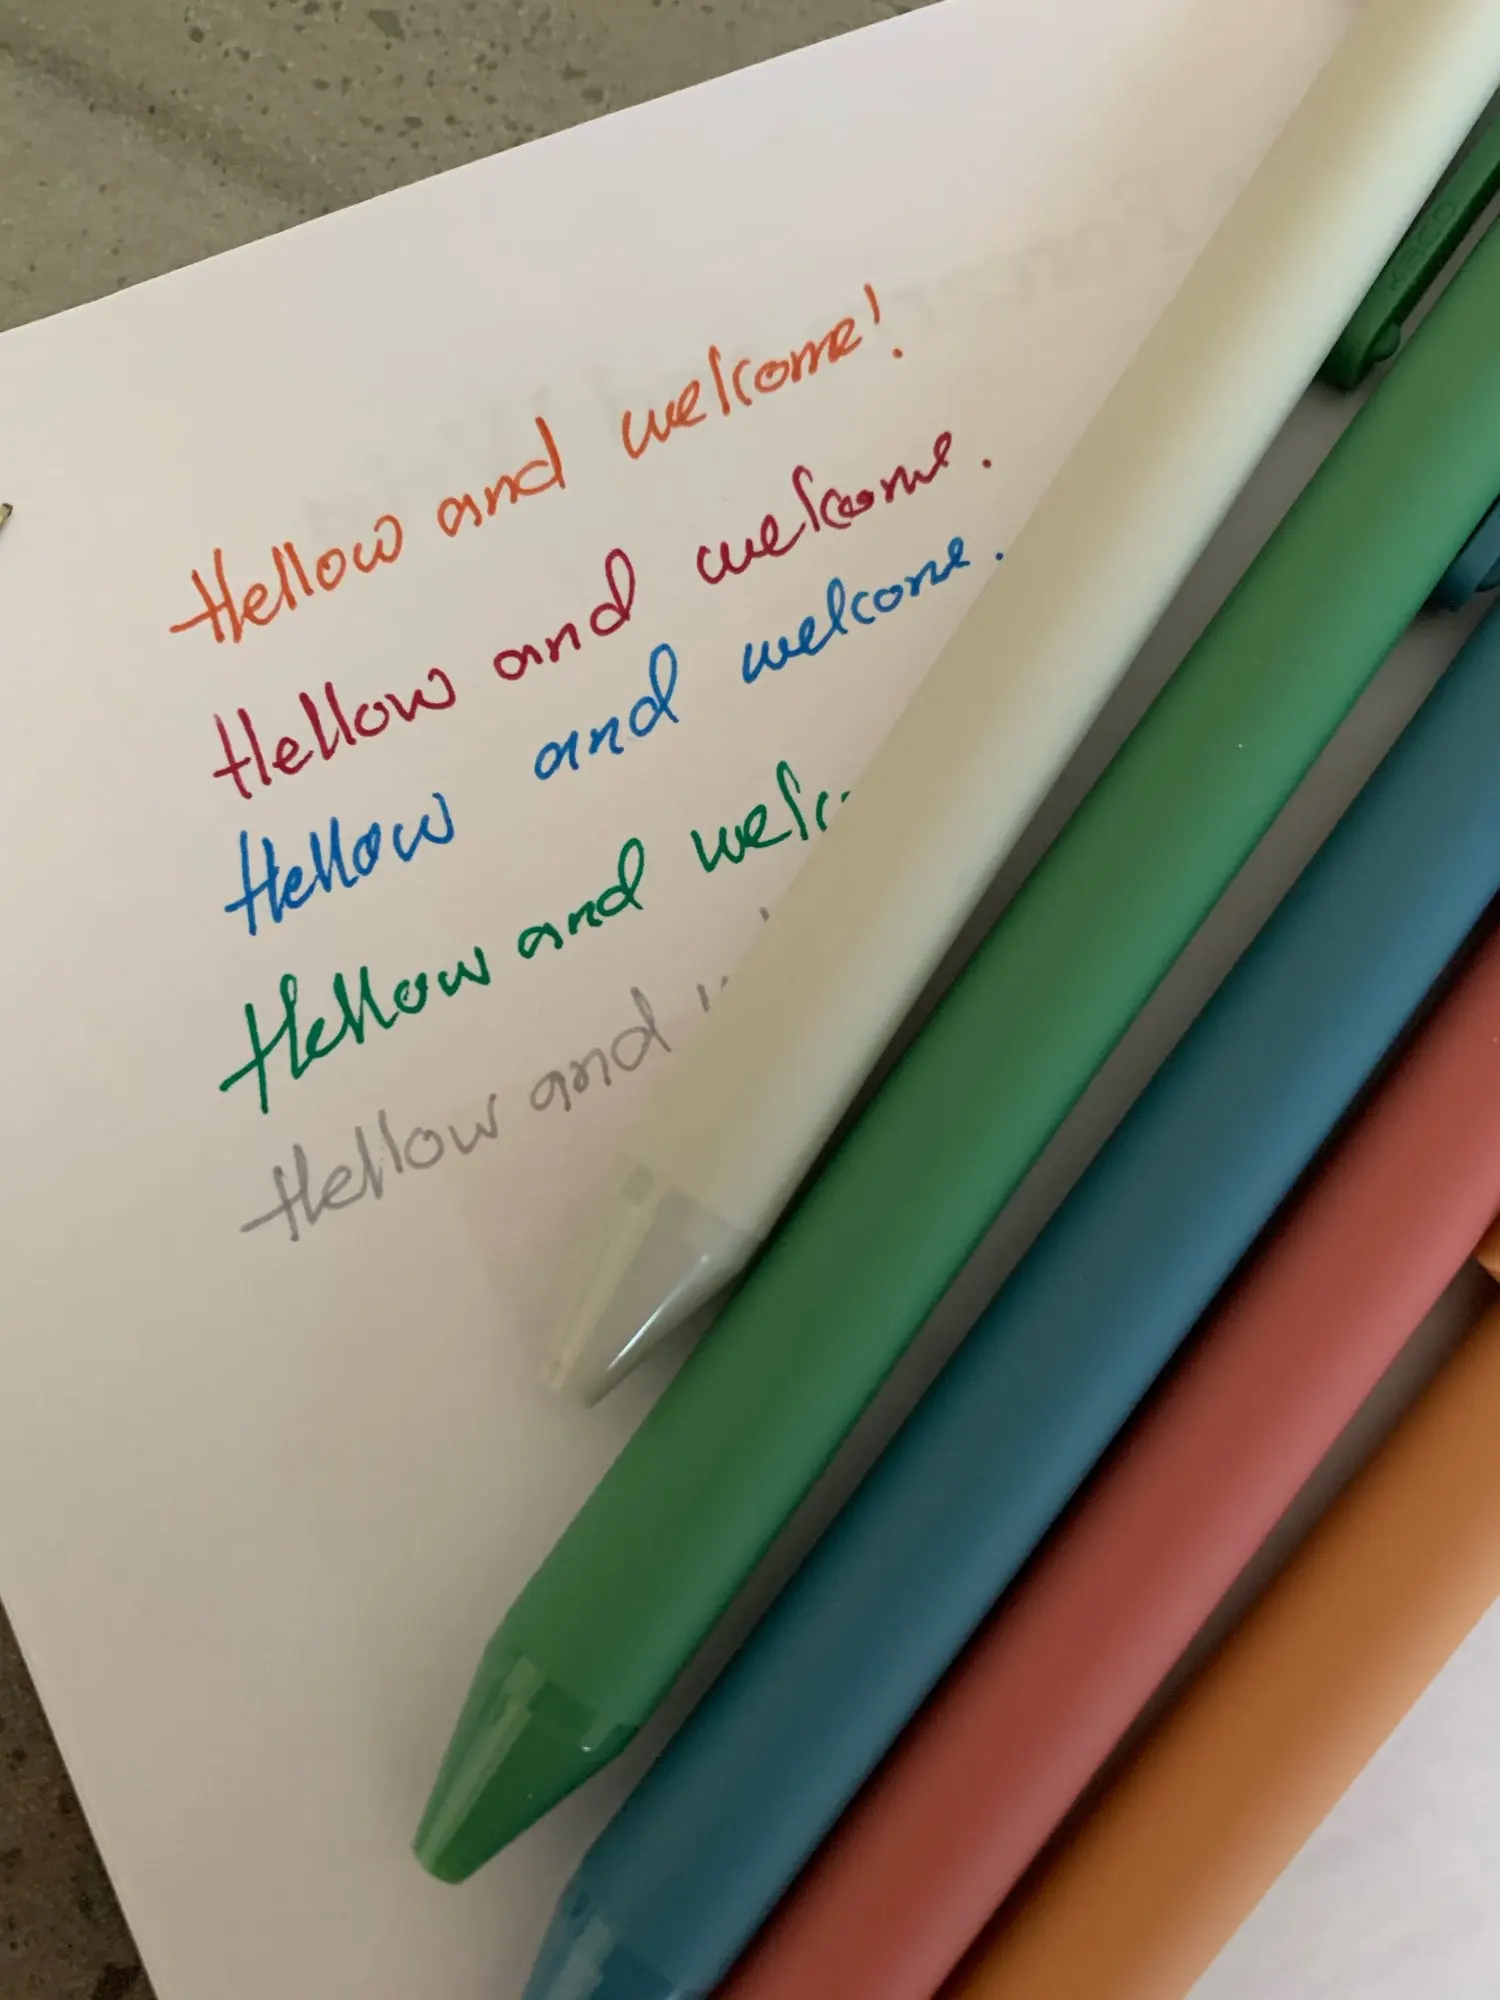 Hellow and welcome!
Hellow and welcome.
Hellow and welcome.
Hellow and welc
Hellow and
KACO